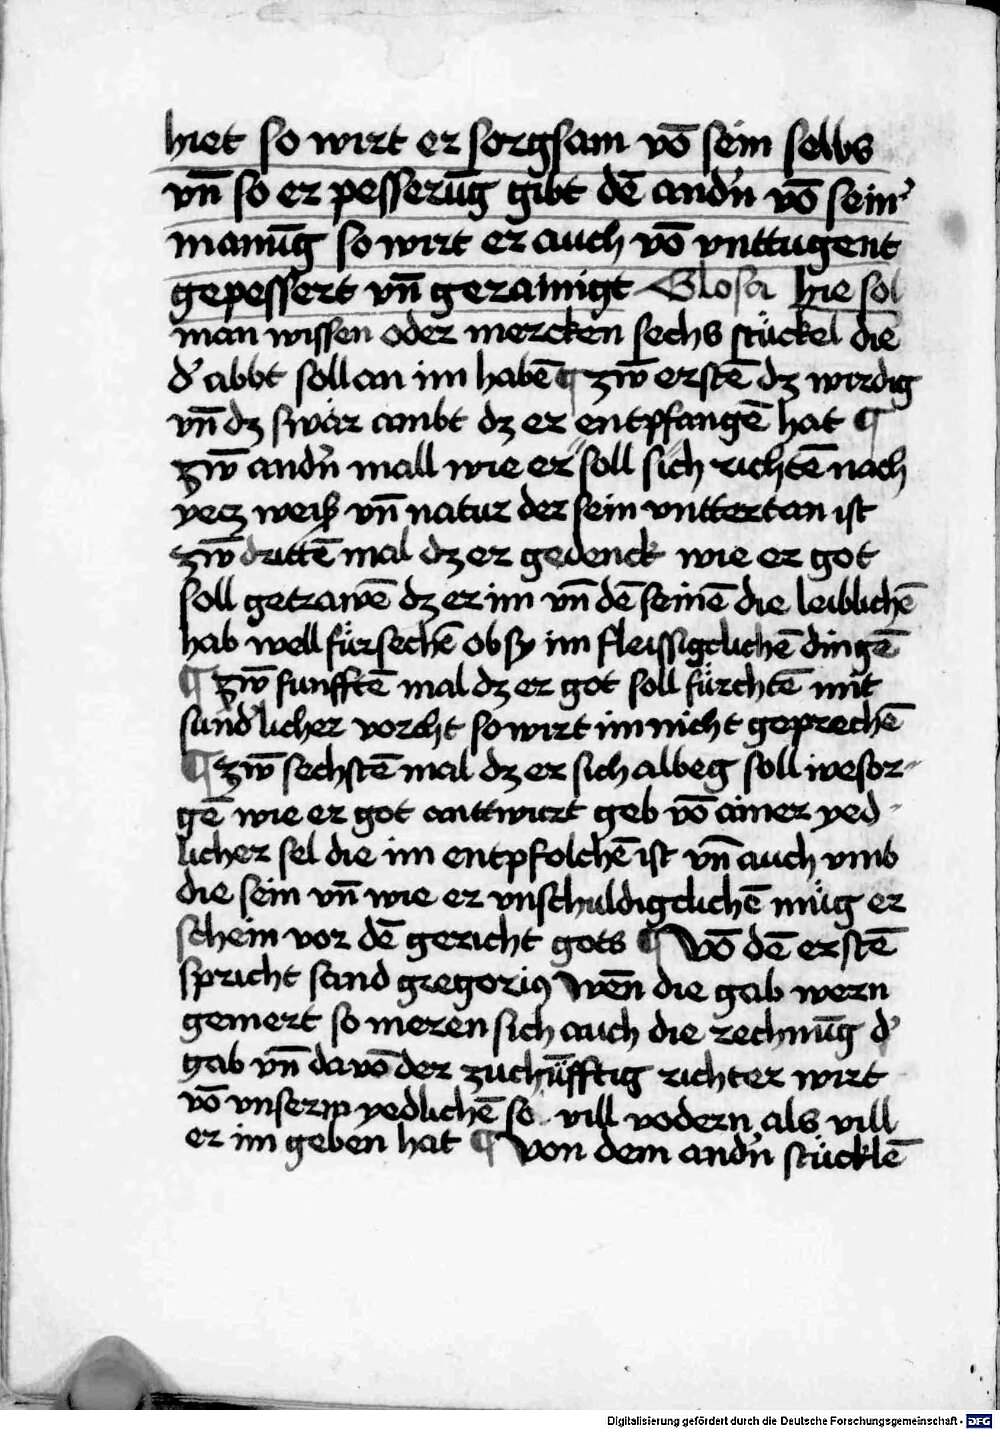 hiet so wirt er sorgsam vō sein selbs
vn̄ so er pesserūg gibt dē and'n vō sein'
manūg so wirt er auch vō vnttugent
gepessert vn̄ gerainigt Glosa hie sol
man wissen oder mercken sechs stückel die
d' abbt soll an im habē ¶ zw̄ erstē dz wirdig
vn̄ dz swär ambt dz er entpfangē hat ¶
zw̄ and'n mall wie er soll sich richtē nach
yetz weiß vn̄ natur der sein vnttertan ist
zw̄ drittē mal dz er gedenck wie er got
soll getrawē dz er im vn̄ dē seinē die leiblichē
hab well fürsechē ob sy im fleissigclichē dingē
¶ zw̄ funfftē mal dz er got soll fürchtē mit
sünd'licher vorcht so wirt im nicht geprechē
¶ zw̄ sechstē mal dz er sich albeg soll wesor-
gē wie er got anttwurt geb vō ainer yed-
licher sel die im entpfolchē ist vn̄ auch vmb
die sein vn̄ wie er vnschuldigclichē müg er
schein vor dē gericht gots ¶ Vō dē erstē
spricht sand gregoriꝰ Wēn die gab wern
gemert so meren sich auch die rechnūg d'
gab vn̄ da vō der zuchūfftig richter wirt
vō vnserm yedlichē so vill vodern als vill
er im geben hat ¶ Von dem and'n stücklē
Digitalisierung gefördert durch die Deutsche Forschungsgemeinschaft - DFG